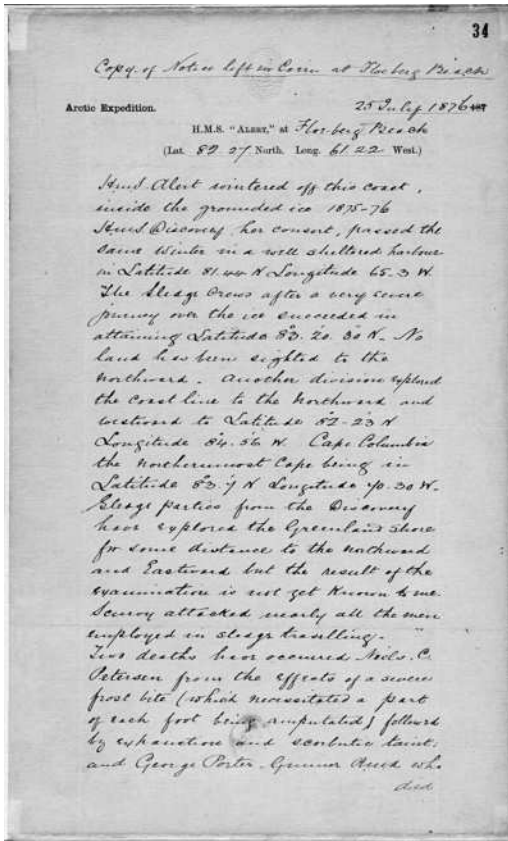 34
Copy of Notice left in Cairn at Floeberg Beach
Arctic Expedition. 25 July 1876
H.M.S. "ALERT," at Floeberg Beach
(Lat. 82.27 North. Long. 61.22 West.)
H.M.S. Alert wintered off this coast,
inside the grounded ice 1875-76
H.M.S. Discovery her consort, passed the
same winter in a well sheltered harbour
in Latitude 81.44 N Longitude 65.3 W.
The Sledge Crews after a very severe
journey over the ice succeeded in
attaining Latitude 83.20.30 N. No
land has been sighted to the
Northward. Another division explored
the coast line to the Northward and
westward to Latitude 82-23 N
Longitude 84.56 W. Cape Columbia
the Northernmost Cape being in
Latitude 83.7 N Longitude 70.30 W.
Sledge parties from the Discovery
have explored the Greenland Shore
for some distance to the northward
and Eastward but the result of the
examination is not yet known to me
Scurvy attacked nearly all the men
employed in sledge travelling.
Two deaths have occurred Neils. C.
Petersen from the effects of a severe
frost bite (which necessitated a part
of each foot being amputated) followed
by exhaustion and scorbutic taint;
and George Porter. Gunner RMA who
died